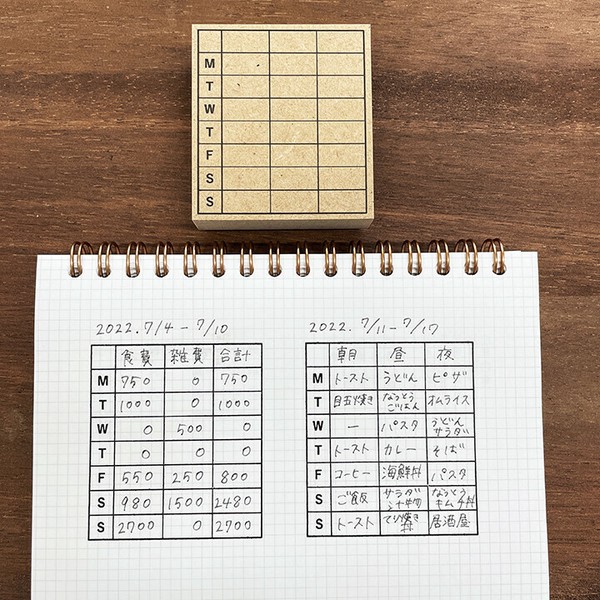 M
T
W
T
F
S
S
2022.7/4-7/10
食費 雑費 合計
M 750 0 750
T 1000 0 1000
W 0 500 0
T 0 0 0
F 550 250 800
S 980 1500 2480
S 2700 0 2700
2022.7/11-7/17
朝 昼 夜
M トースト うどん ピザ
T 目玉焼き なっとうごはん オムライス
W ー パスタ うどんサラダ
T トースト カレー そば
F コーヒー 海鮮丼 パスタ
S ご飯 サラダ なっとうキムチ丼
S トースト 居酒屋